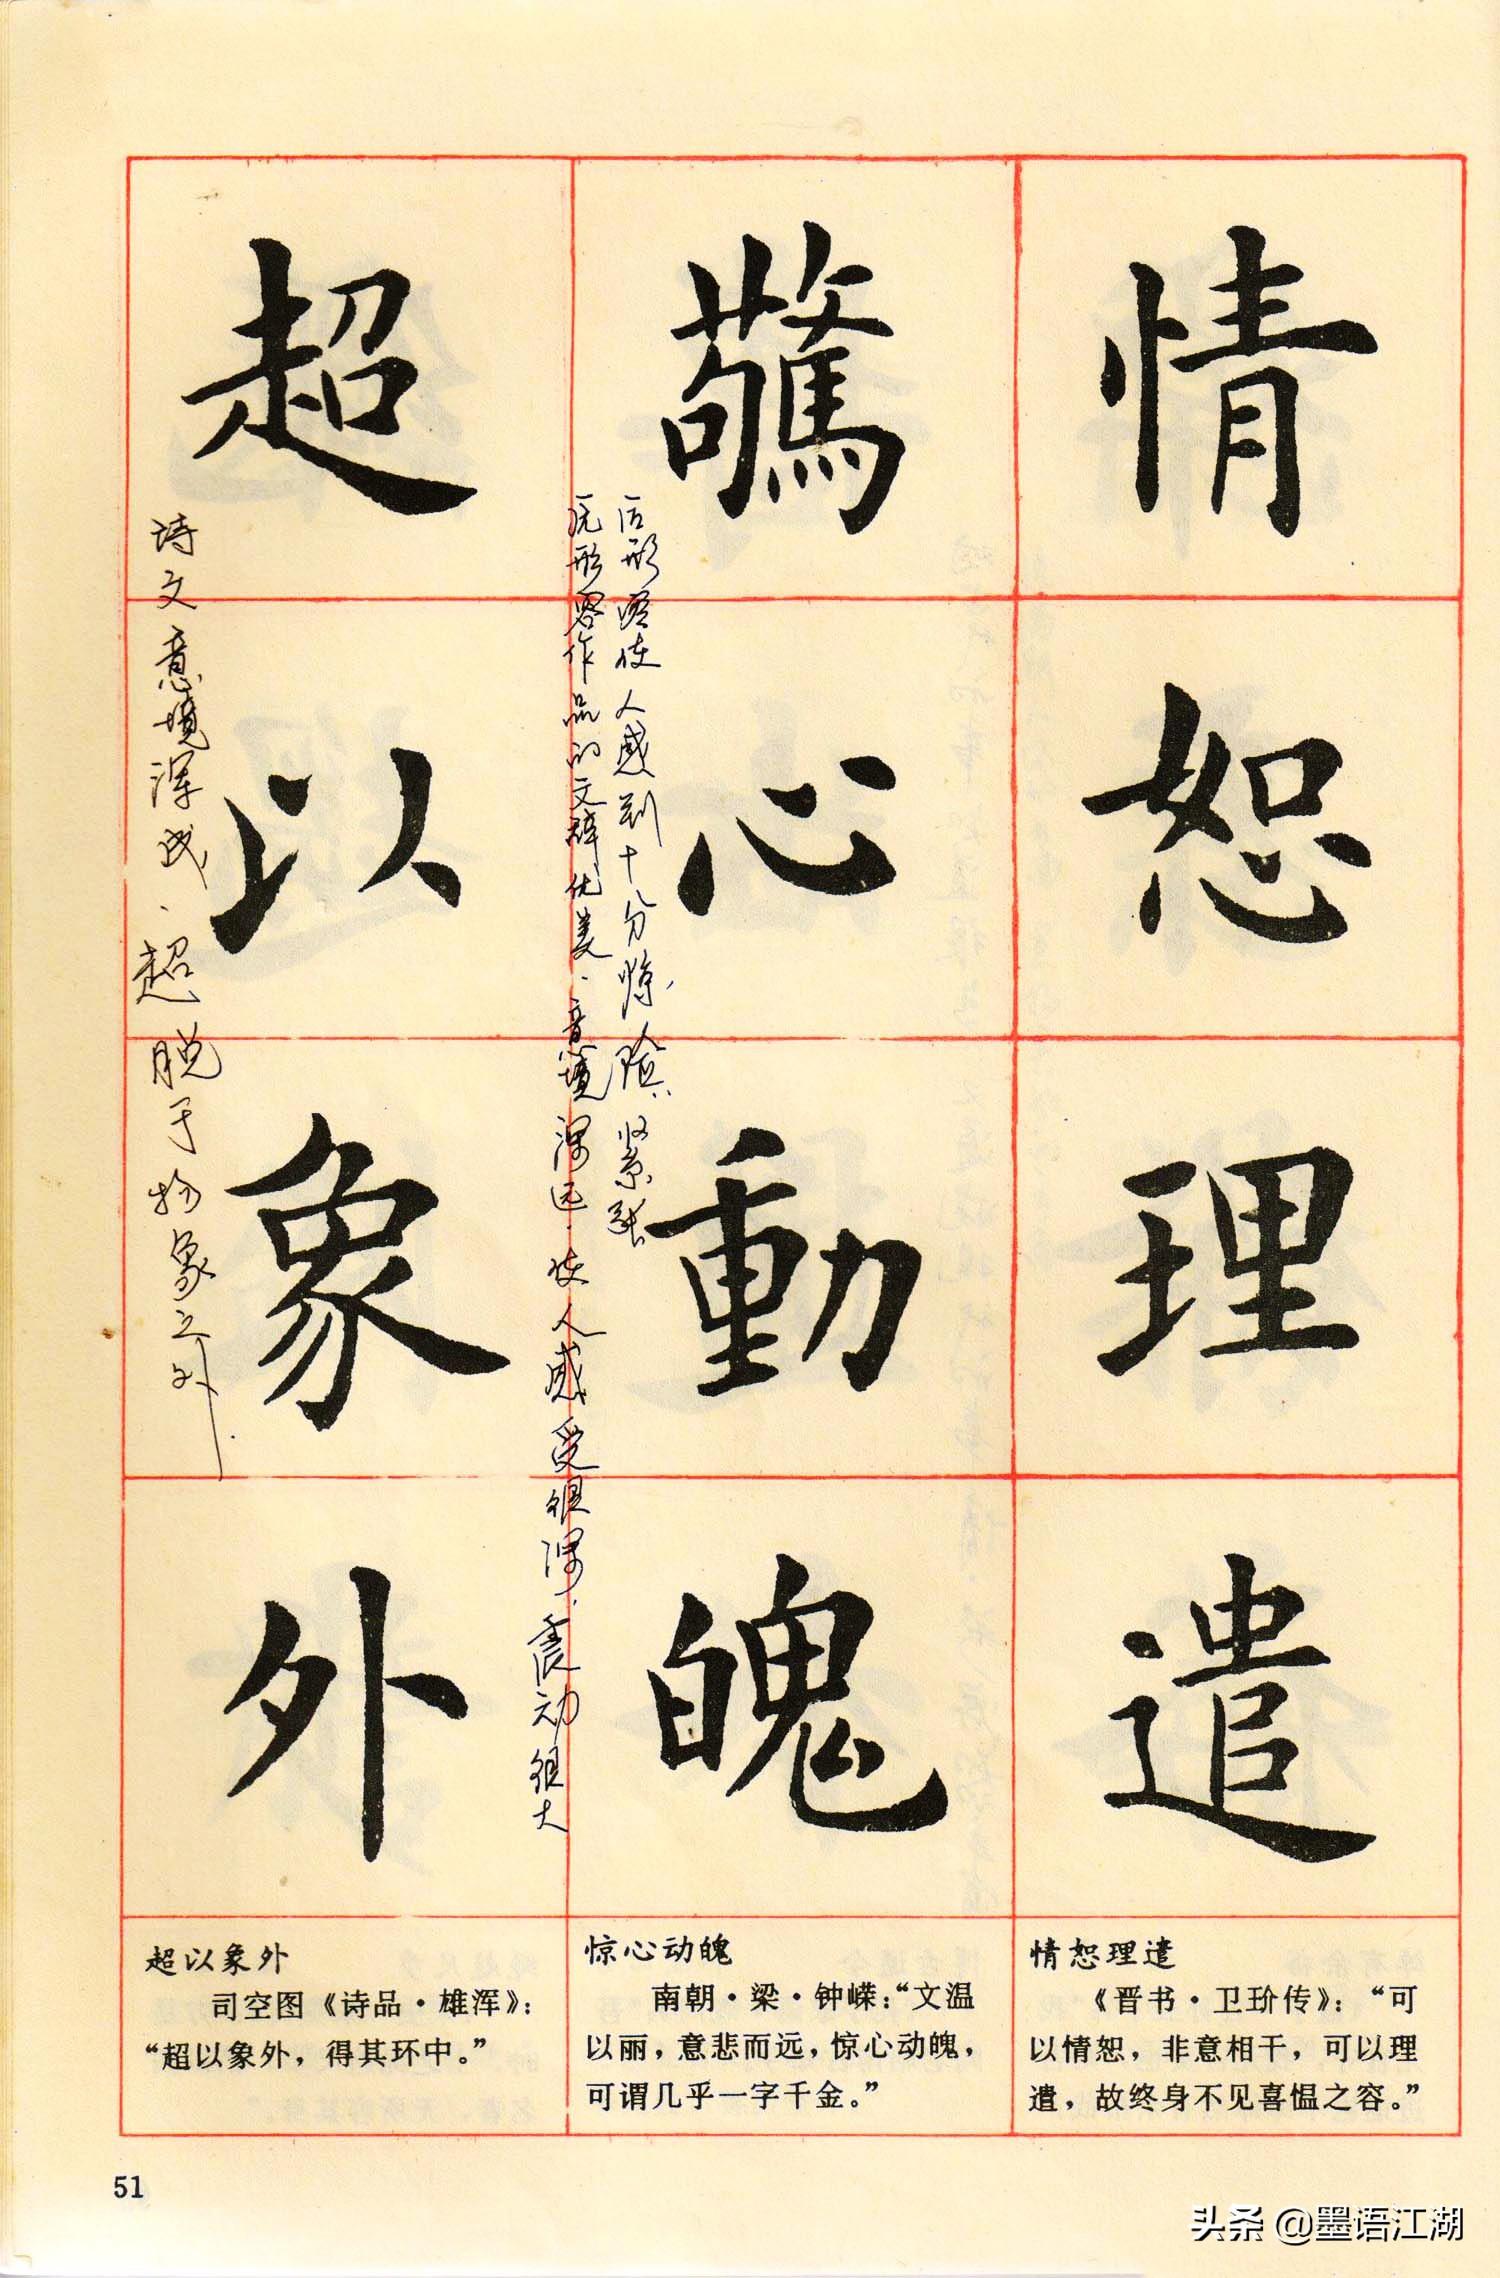 情恕理遣
驚心動魄
超以象外
后形容使人感到十分惊险、紧张
原形容作品的文辞优美、意境深远、使人感受很深、震动很大
诗文意境浑成、超脱于物象之外
情恕理遣
《晋书·卫玠传》：“可
以情恕，非意相干，可以理
遣，故终身不见喜愠之容。”
惊心动魄
南朝·梁·钟嵘：“文温
以丽，意悲而远，惊心动魄，
可谓几乎一字千金。”
超以象外
司空图《诗品·雄浑》：
“超以象外，得其环中。”
51
头条 @墨语江湖